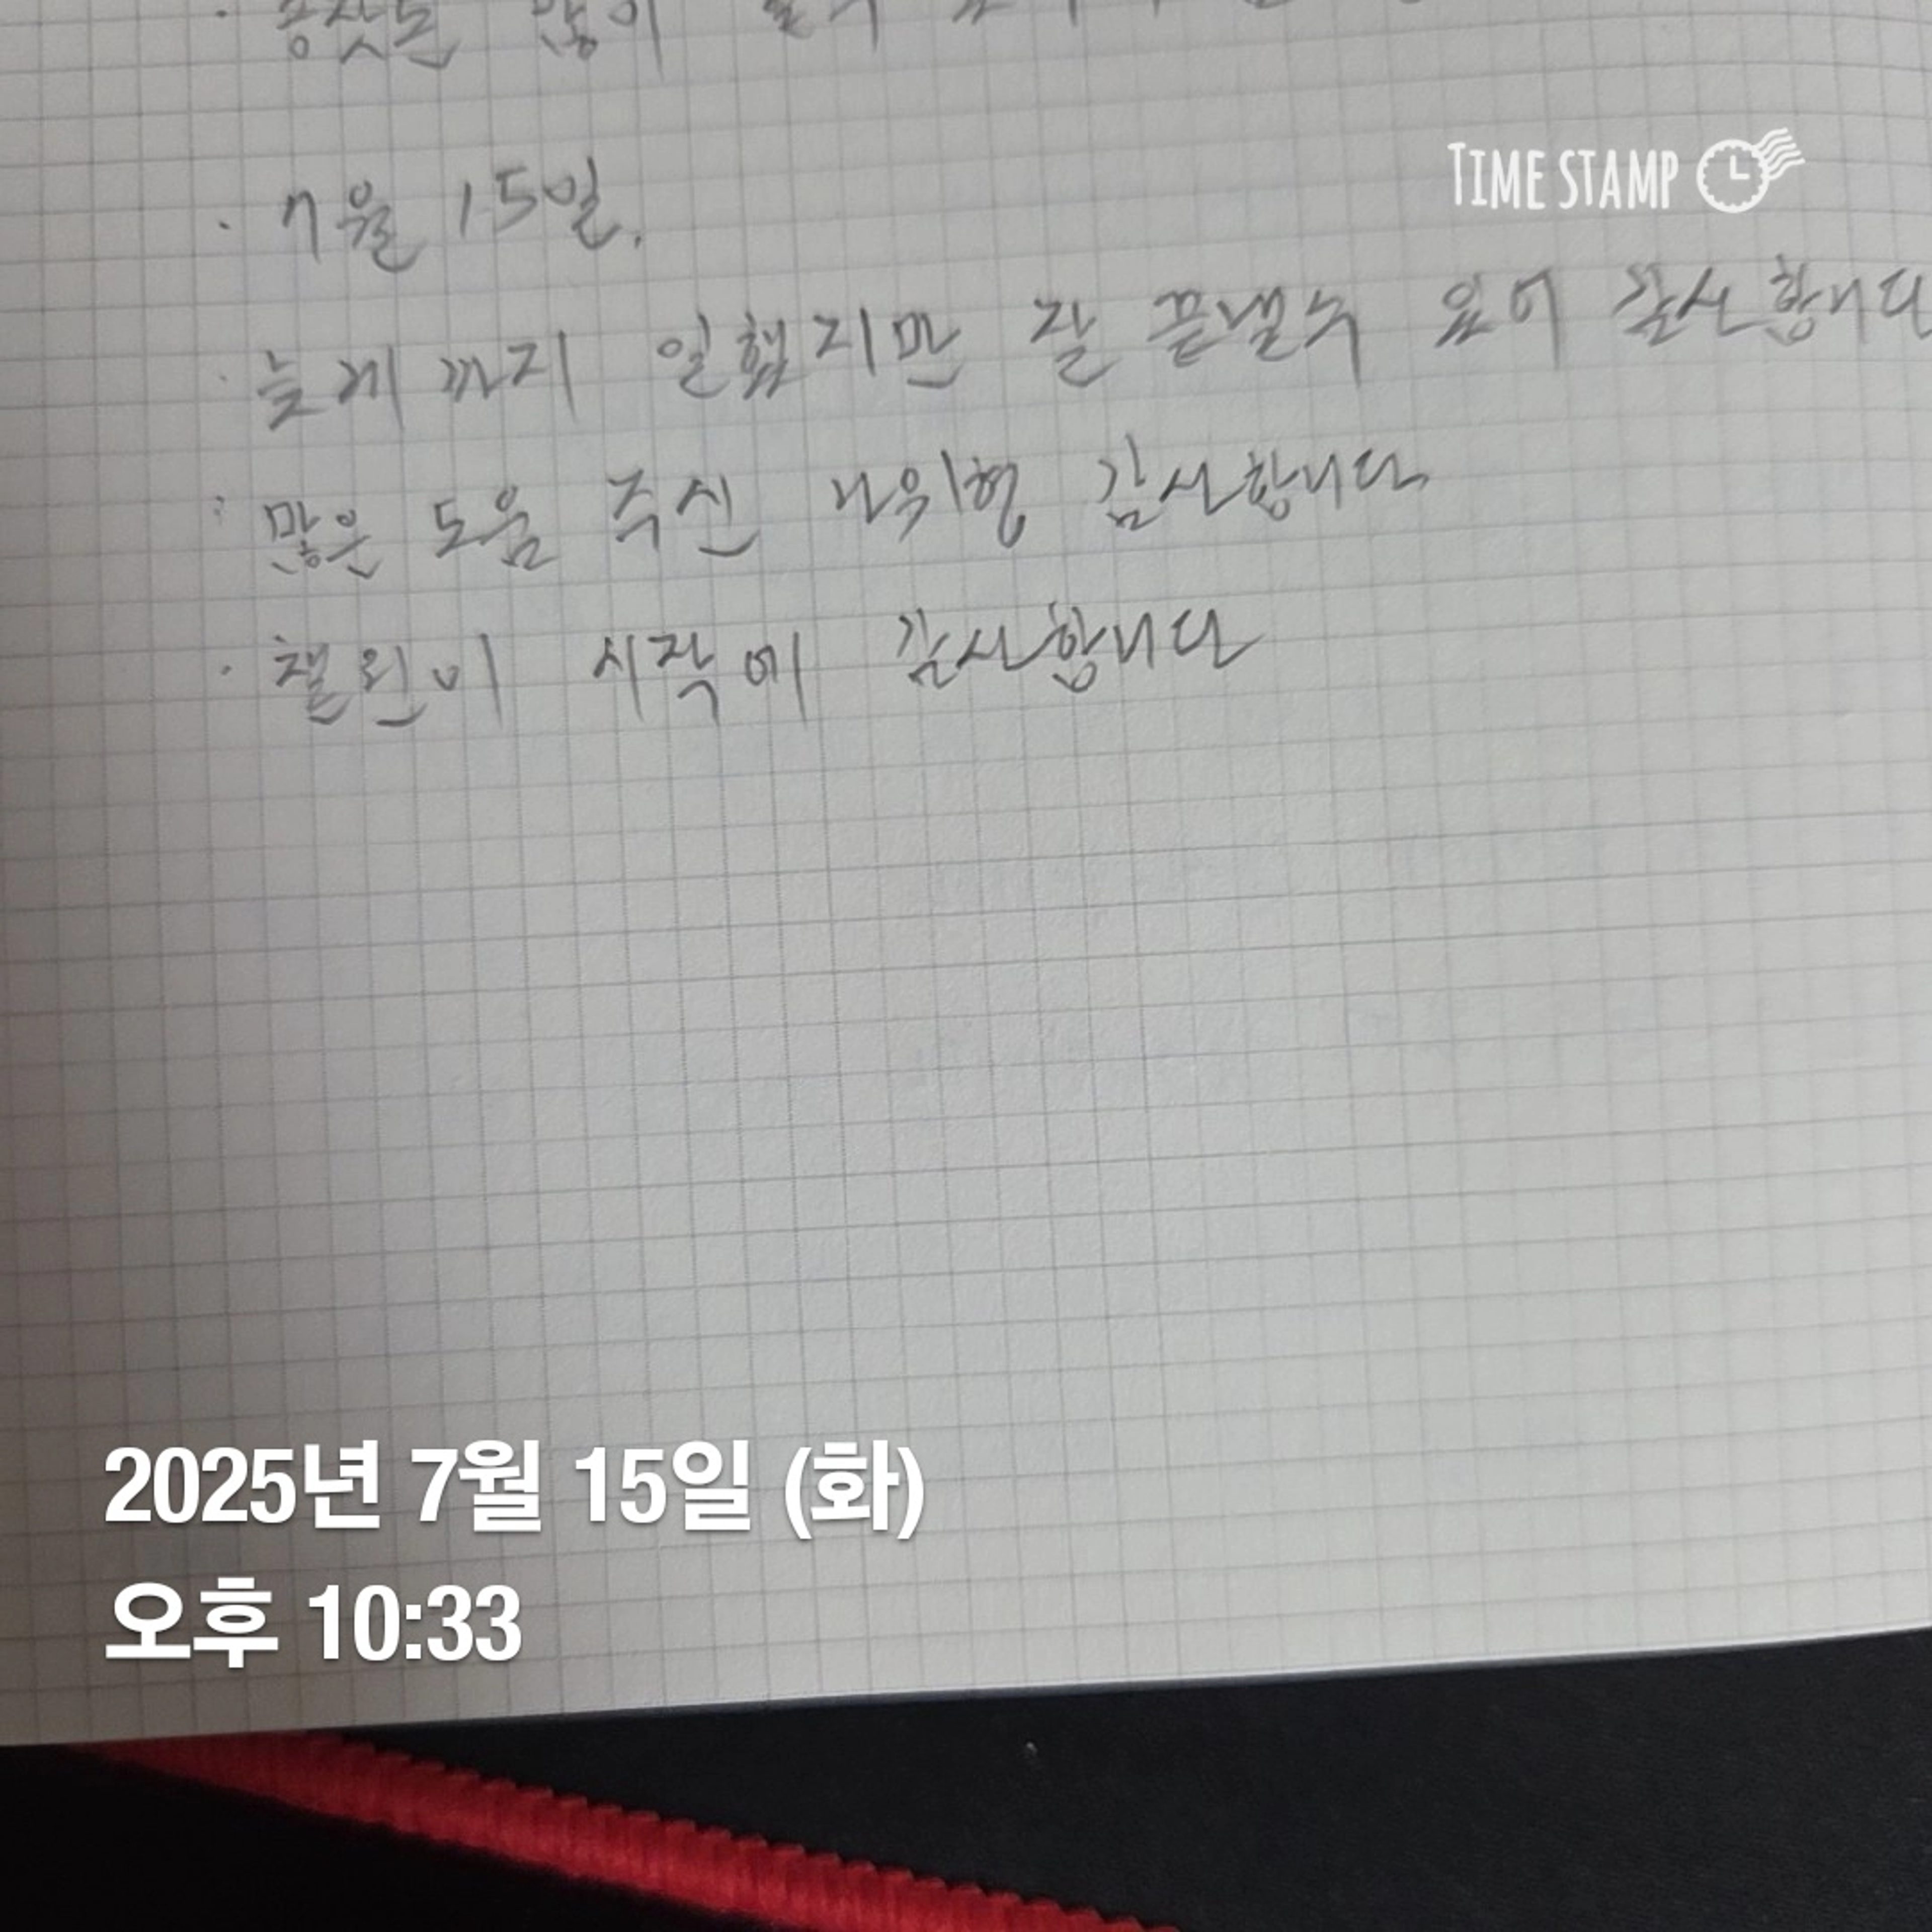 많이
· 7월 15일.
TIME STAMP
· 늦게 까지 일했지만 잘 끝낼수 있어 감사합니다
: 많은 도움 주신 나위형 감사합니다
· 챌린이 시작에 감사합니다
2025년 7월 15일 (화)
오후 10:33